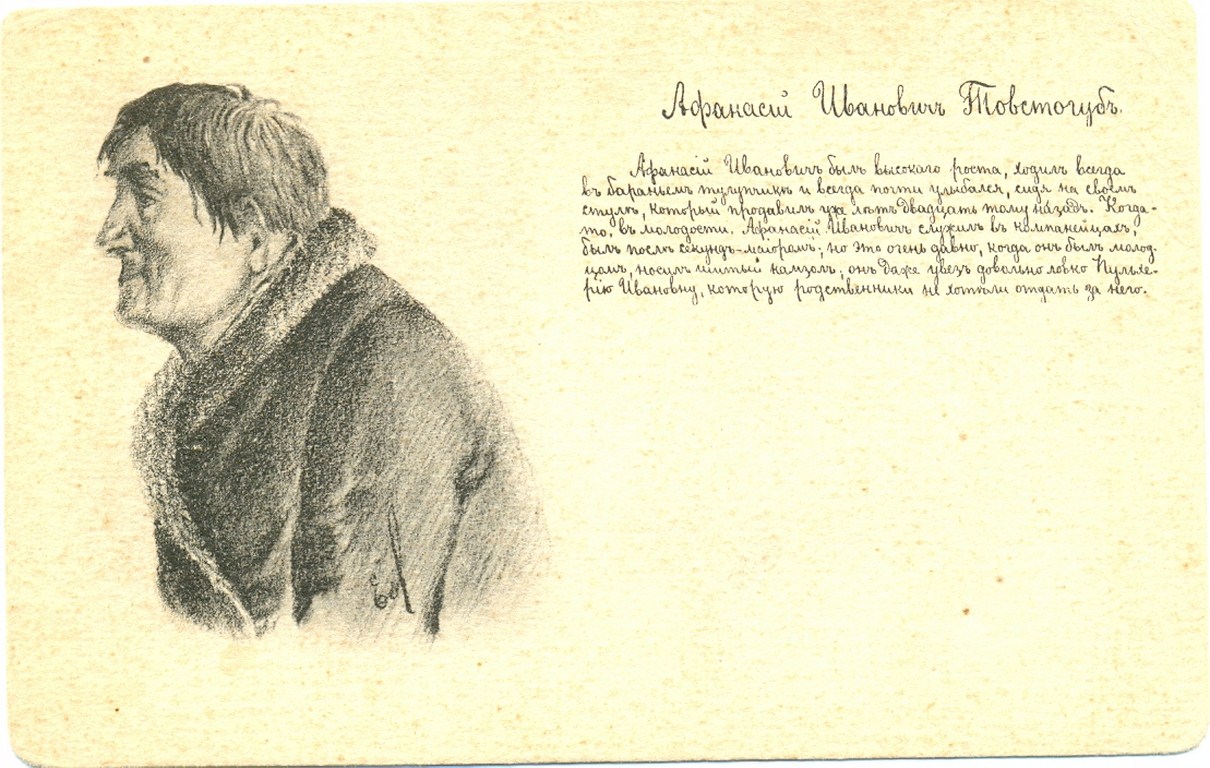 Аѳанасій Ивановичъ Товстогубъ.
Аѳанасій Ивановичъ былъ высокаго роста, ходилъ всегда
въ бараньемъ тулупчикѣ и всегда почти улыбался, сидя на своемъ
стулѣ, который продавилъ уже лѣтъ двадцать тому назадъ. Когда-
то, въ молодости, Аѳанасій Ивановичъ служилъ въ компанейцахъ,
былъ послѣ секундъ-маіоромъ; но это очень давно, когда онъ былъ молод-
цомъ, носилъ шитый камзолъ; онъ даже увезъ довольно ловко Пульхе-
рію Ивановну, которую родственники не хотѣли отдать за него.